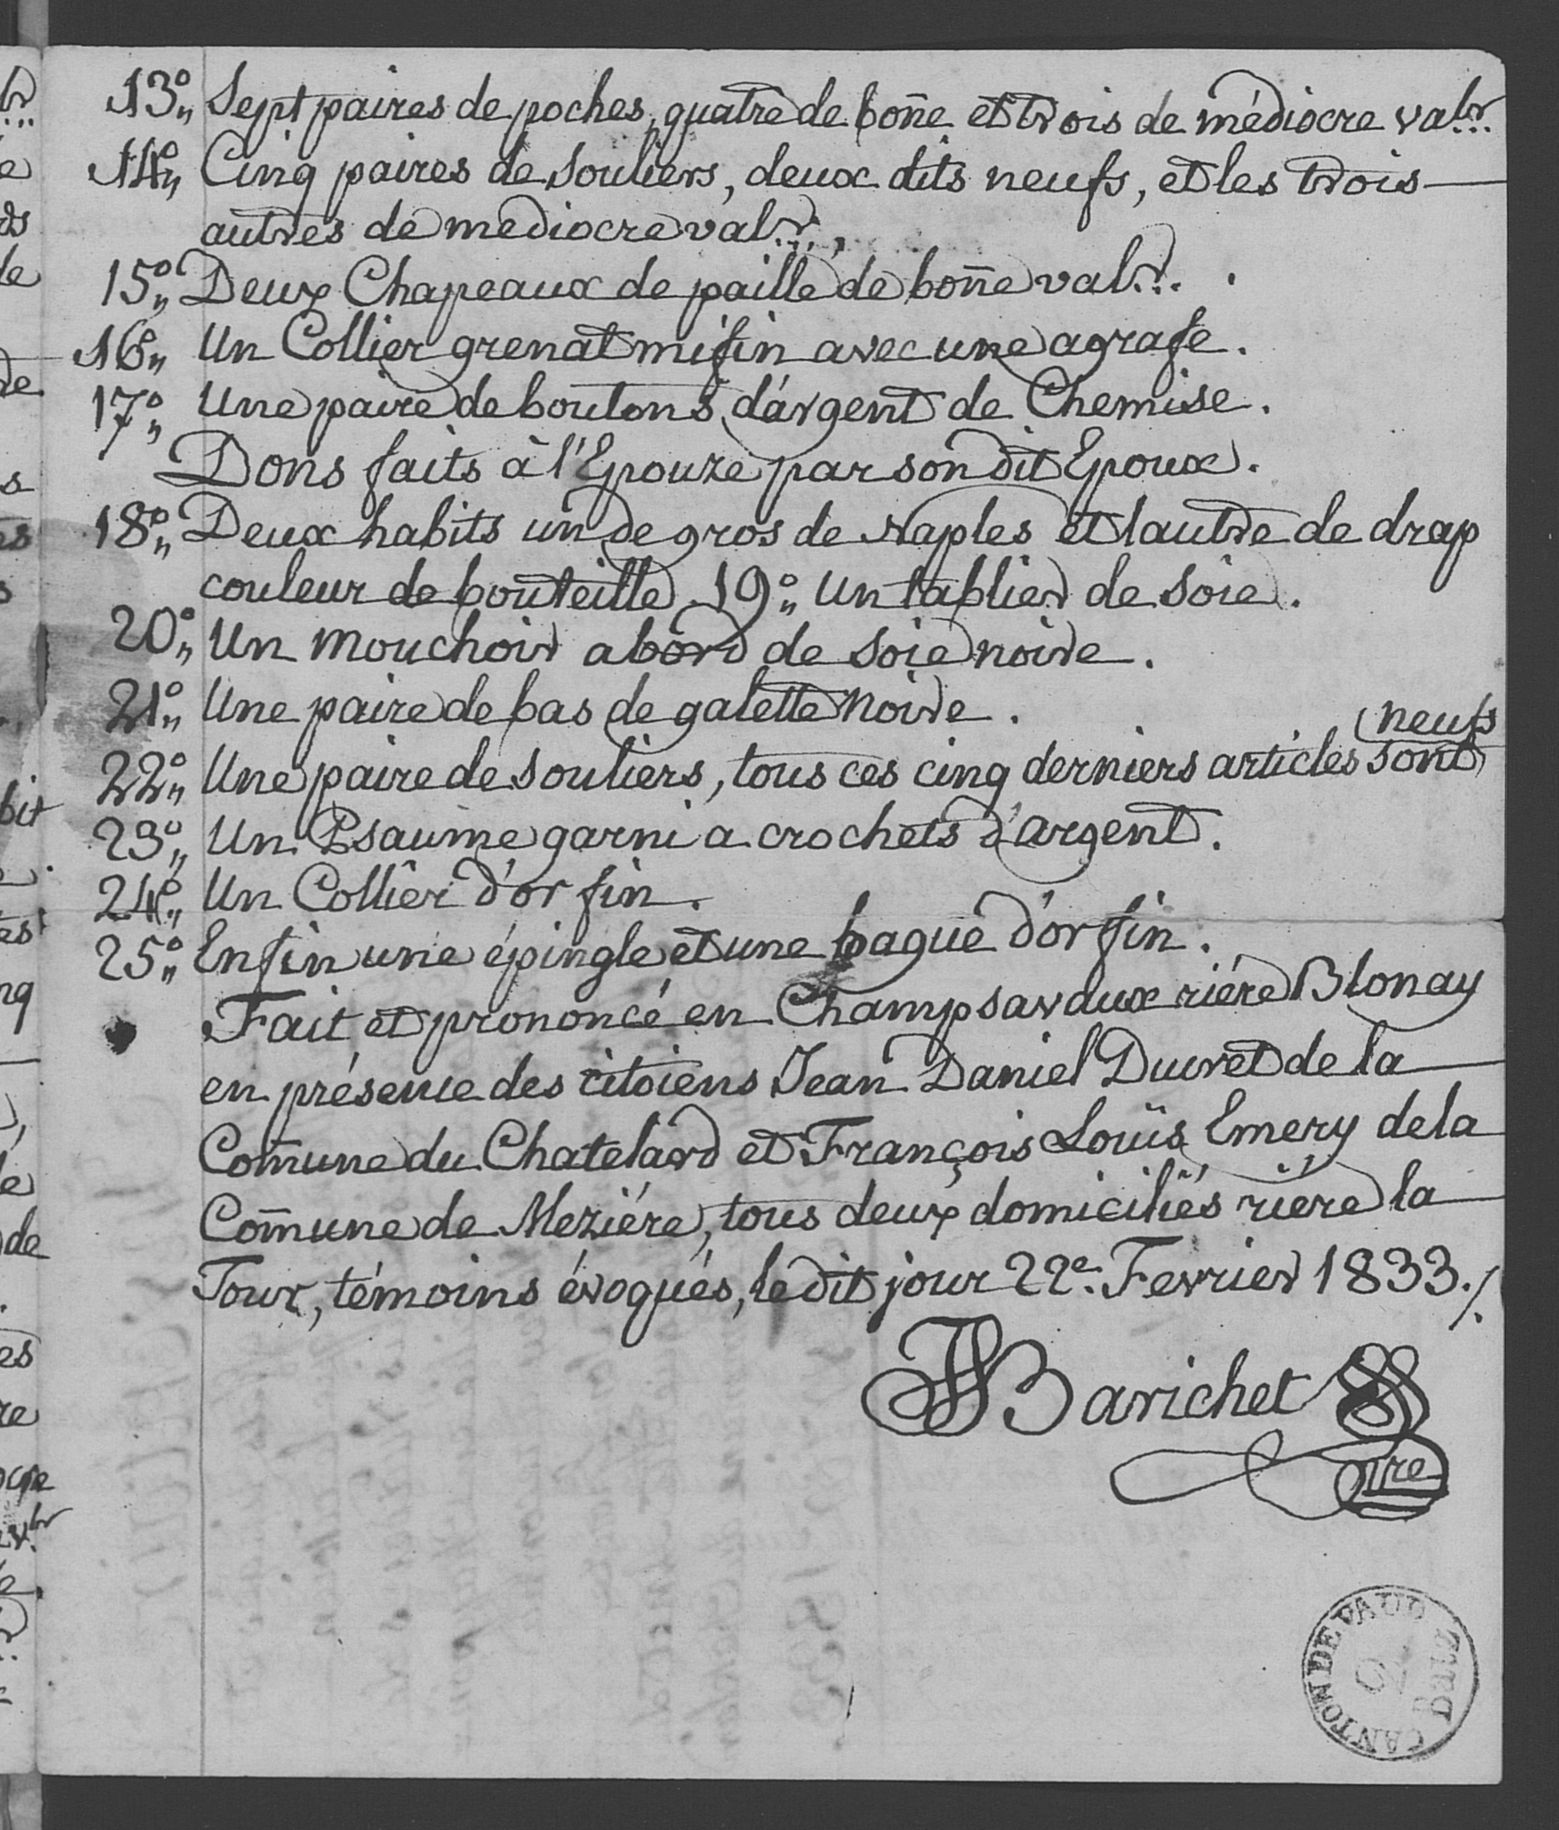 13°„ Sept paires de poches, quatre de bon̄e et trois de médiocre val.r
14°„ Cinq paires de souliers, deux dits neufs, et les trois
autres de mediocre val.r,
15°„ Deux Chapeaux de paille de bon̄e val.r.
16°„ Un Collier grenat mifin avec une agrafe.
17°„ Une paire de boutons d'argent de Chemise.
Dons faits à l'Epouze par son dit Epoux.
18°„ Deux habits un de gros de Naples et lautre de drap
couleur de bouteille. 19°„ Un tablier de soie.
20°„ Un mouchoir a bord de soie noire.
21°„ Une paire de bas de galette noire.
neufs
22°„ Une paire de souliers, tous ces cinq derniers articles sont
23°„ Un Psaume garni a crochets d'argent.
24°„ Un Collier d'or fin.
25°„ Enfin une épingle et une bague d'or fin.
Fait et prononcé en Champsavaux riére Blonay
en présence des citoiens Jean Daniel Ducret de la
Com̄une du Chatelard et François Louïs Emery de la
Com̄une de Meziére, tous deux domiciliés riére la
Tour, témoins évoqués, le dit jour 22e. Fevrier 1833./.
Barichet
CANTON DE VAUD